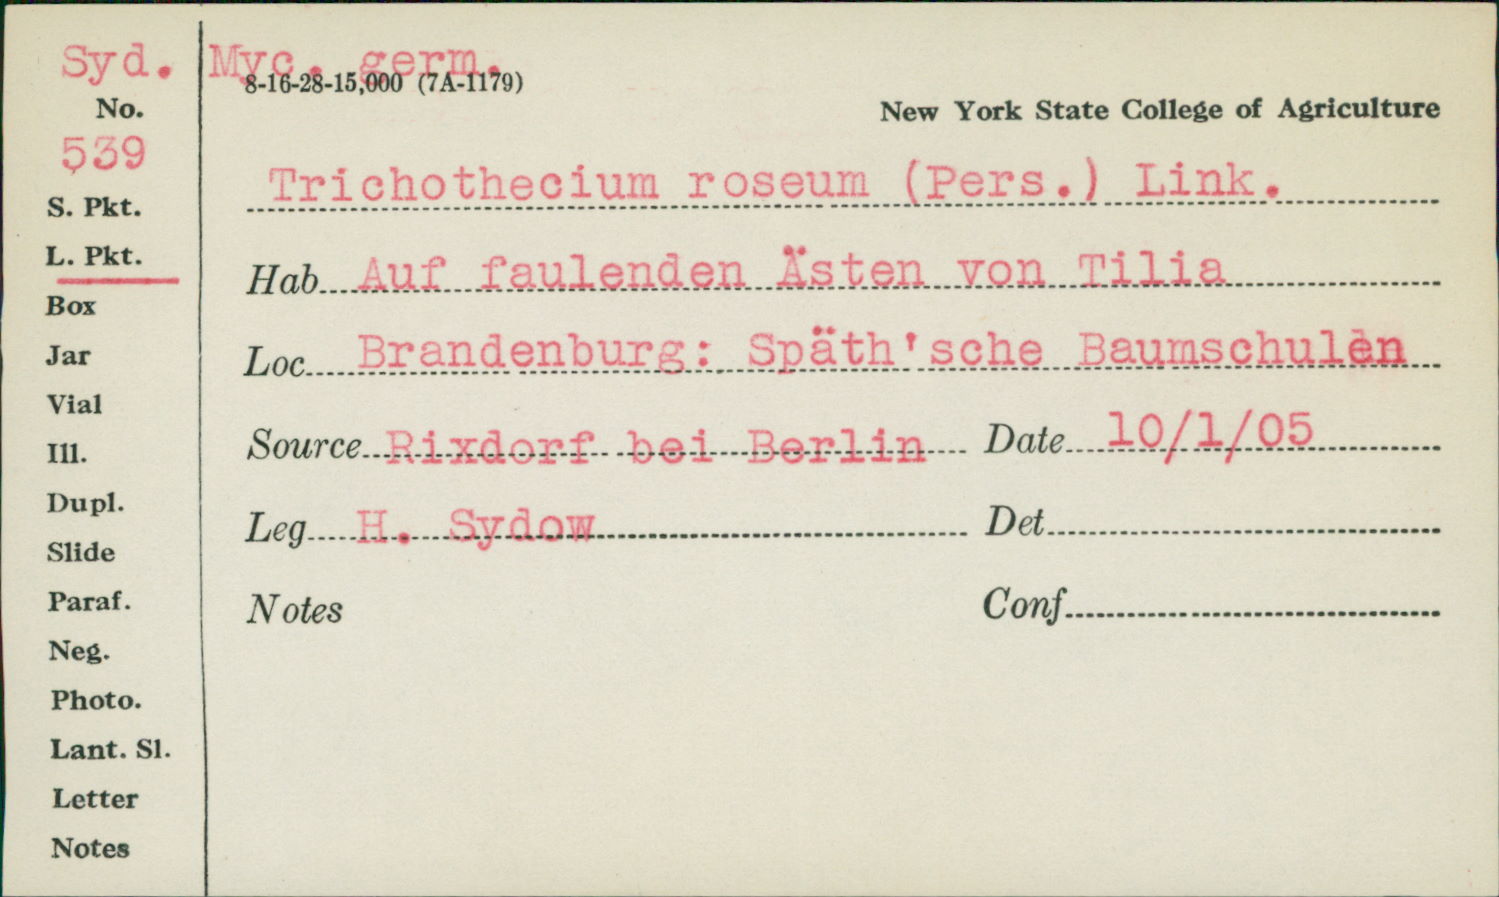 Syd. Myc. germ.
8-16-28-15,000 (7A-1179)
No.
New York State College of Agriculture
539
Trichothecium roseum (Pers.) Link.
S. Pkt.
L. Pkt.
Hab. Auf faulenden Ästen von Tilia
Box
Jar
Loc. Brandenburg: Späth'sche Baumschulen
Vial
Ill.
Source Rixdorf bei Berlin Date 10/1/05
Dupl.
Leg H. Sydow Det
Slide
Paraf.
Notes Conf
Neg.
Photo.
Lant. Sl.
Letter
Notes